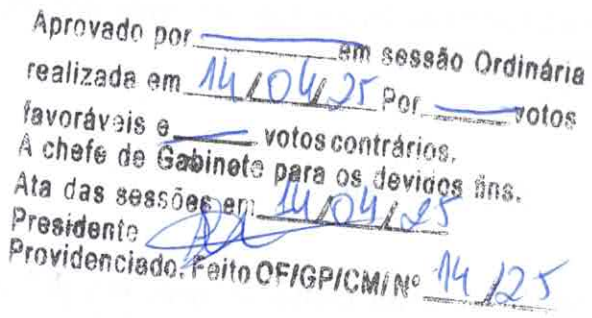 Aprovado por ______ em sessão Ordinária
realizada em 14/04/25 Por ____ votos
favoráveis e ____ votos contrários.
A chefe de Gabinete para os devidos fins.
Ata das sessões em 14/04/25
Presidente
Providenciado. Feito OF/GP/CM/Nº 14/25